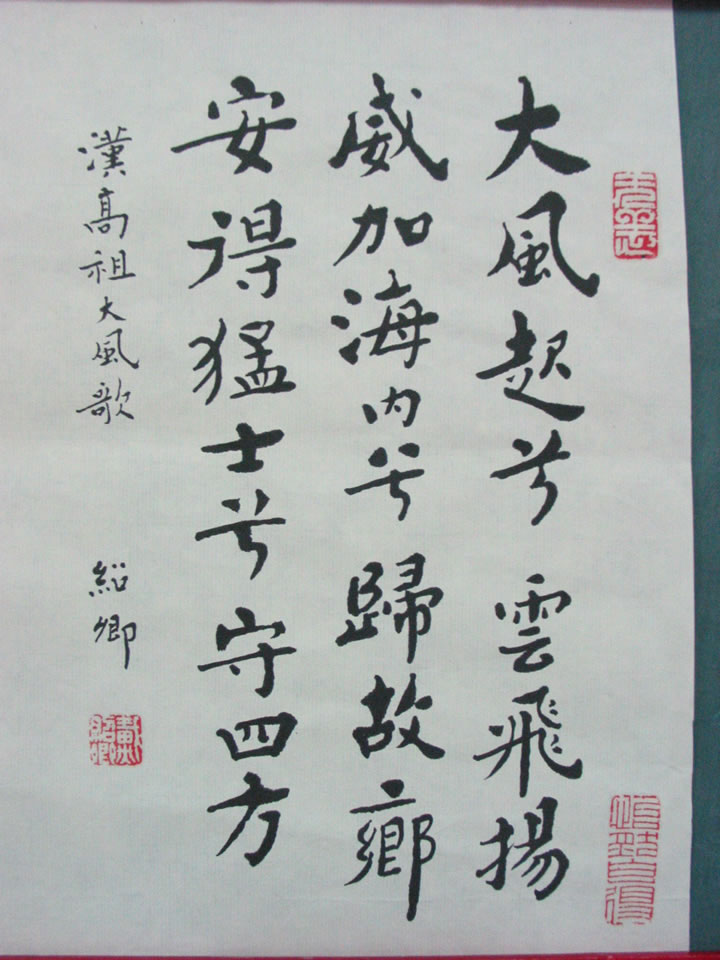 大風起兮雲飛揚
威加海内兮歸故鄉
安得猛士兮守四方
漢高祖大風歌
紹卿
戴紹卿